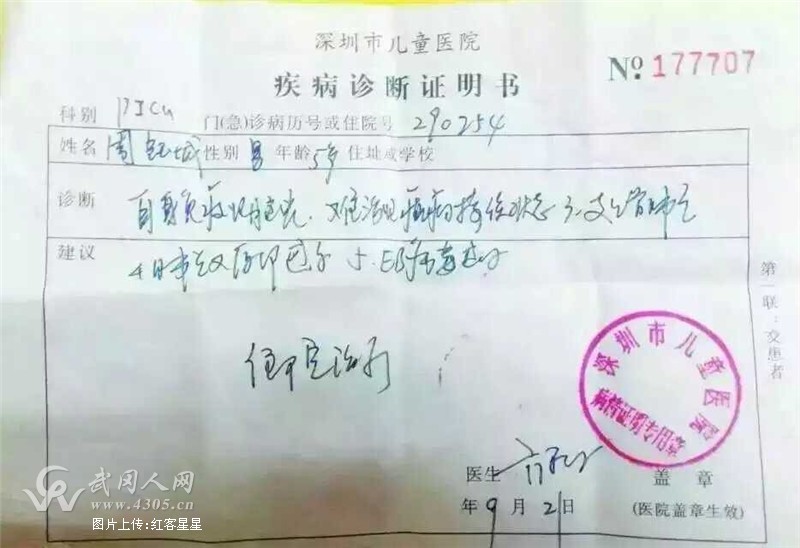 深圳市儿童医院
疾病诊断证明书
№ 177707
科别 PICU 门(急)诊病历号或住院号 290254
姓名 周 性别 男 年龄 5岁 住址或学校
诊断 自身免疫性脑炎、难治性癫痫持续状态 3.支气管肺炎
建议
4 5.EB病毒感染
住院治疗
第一联：交患者
深圳市儿童医院
病情证明专用章
医生
盖章
年 9 月 21 日
(医院盖章生效)
武冈人网
www.4305.cn
图片上传:红客星星